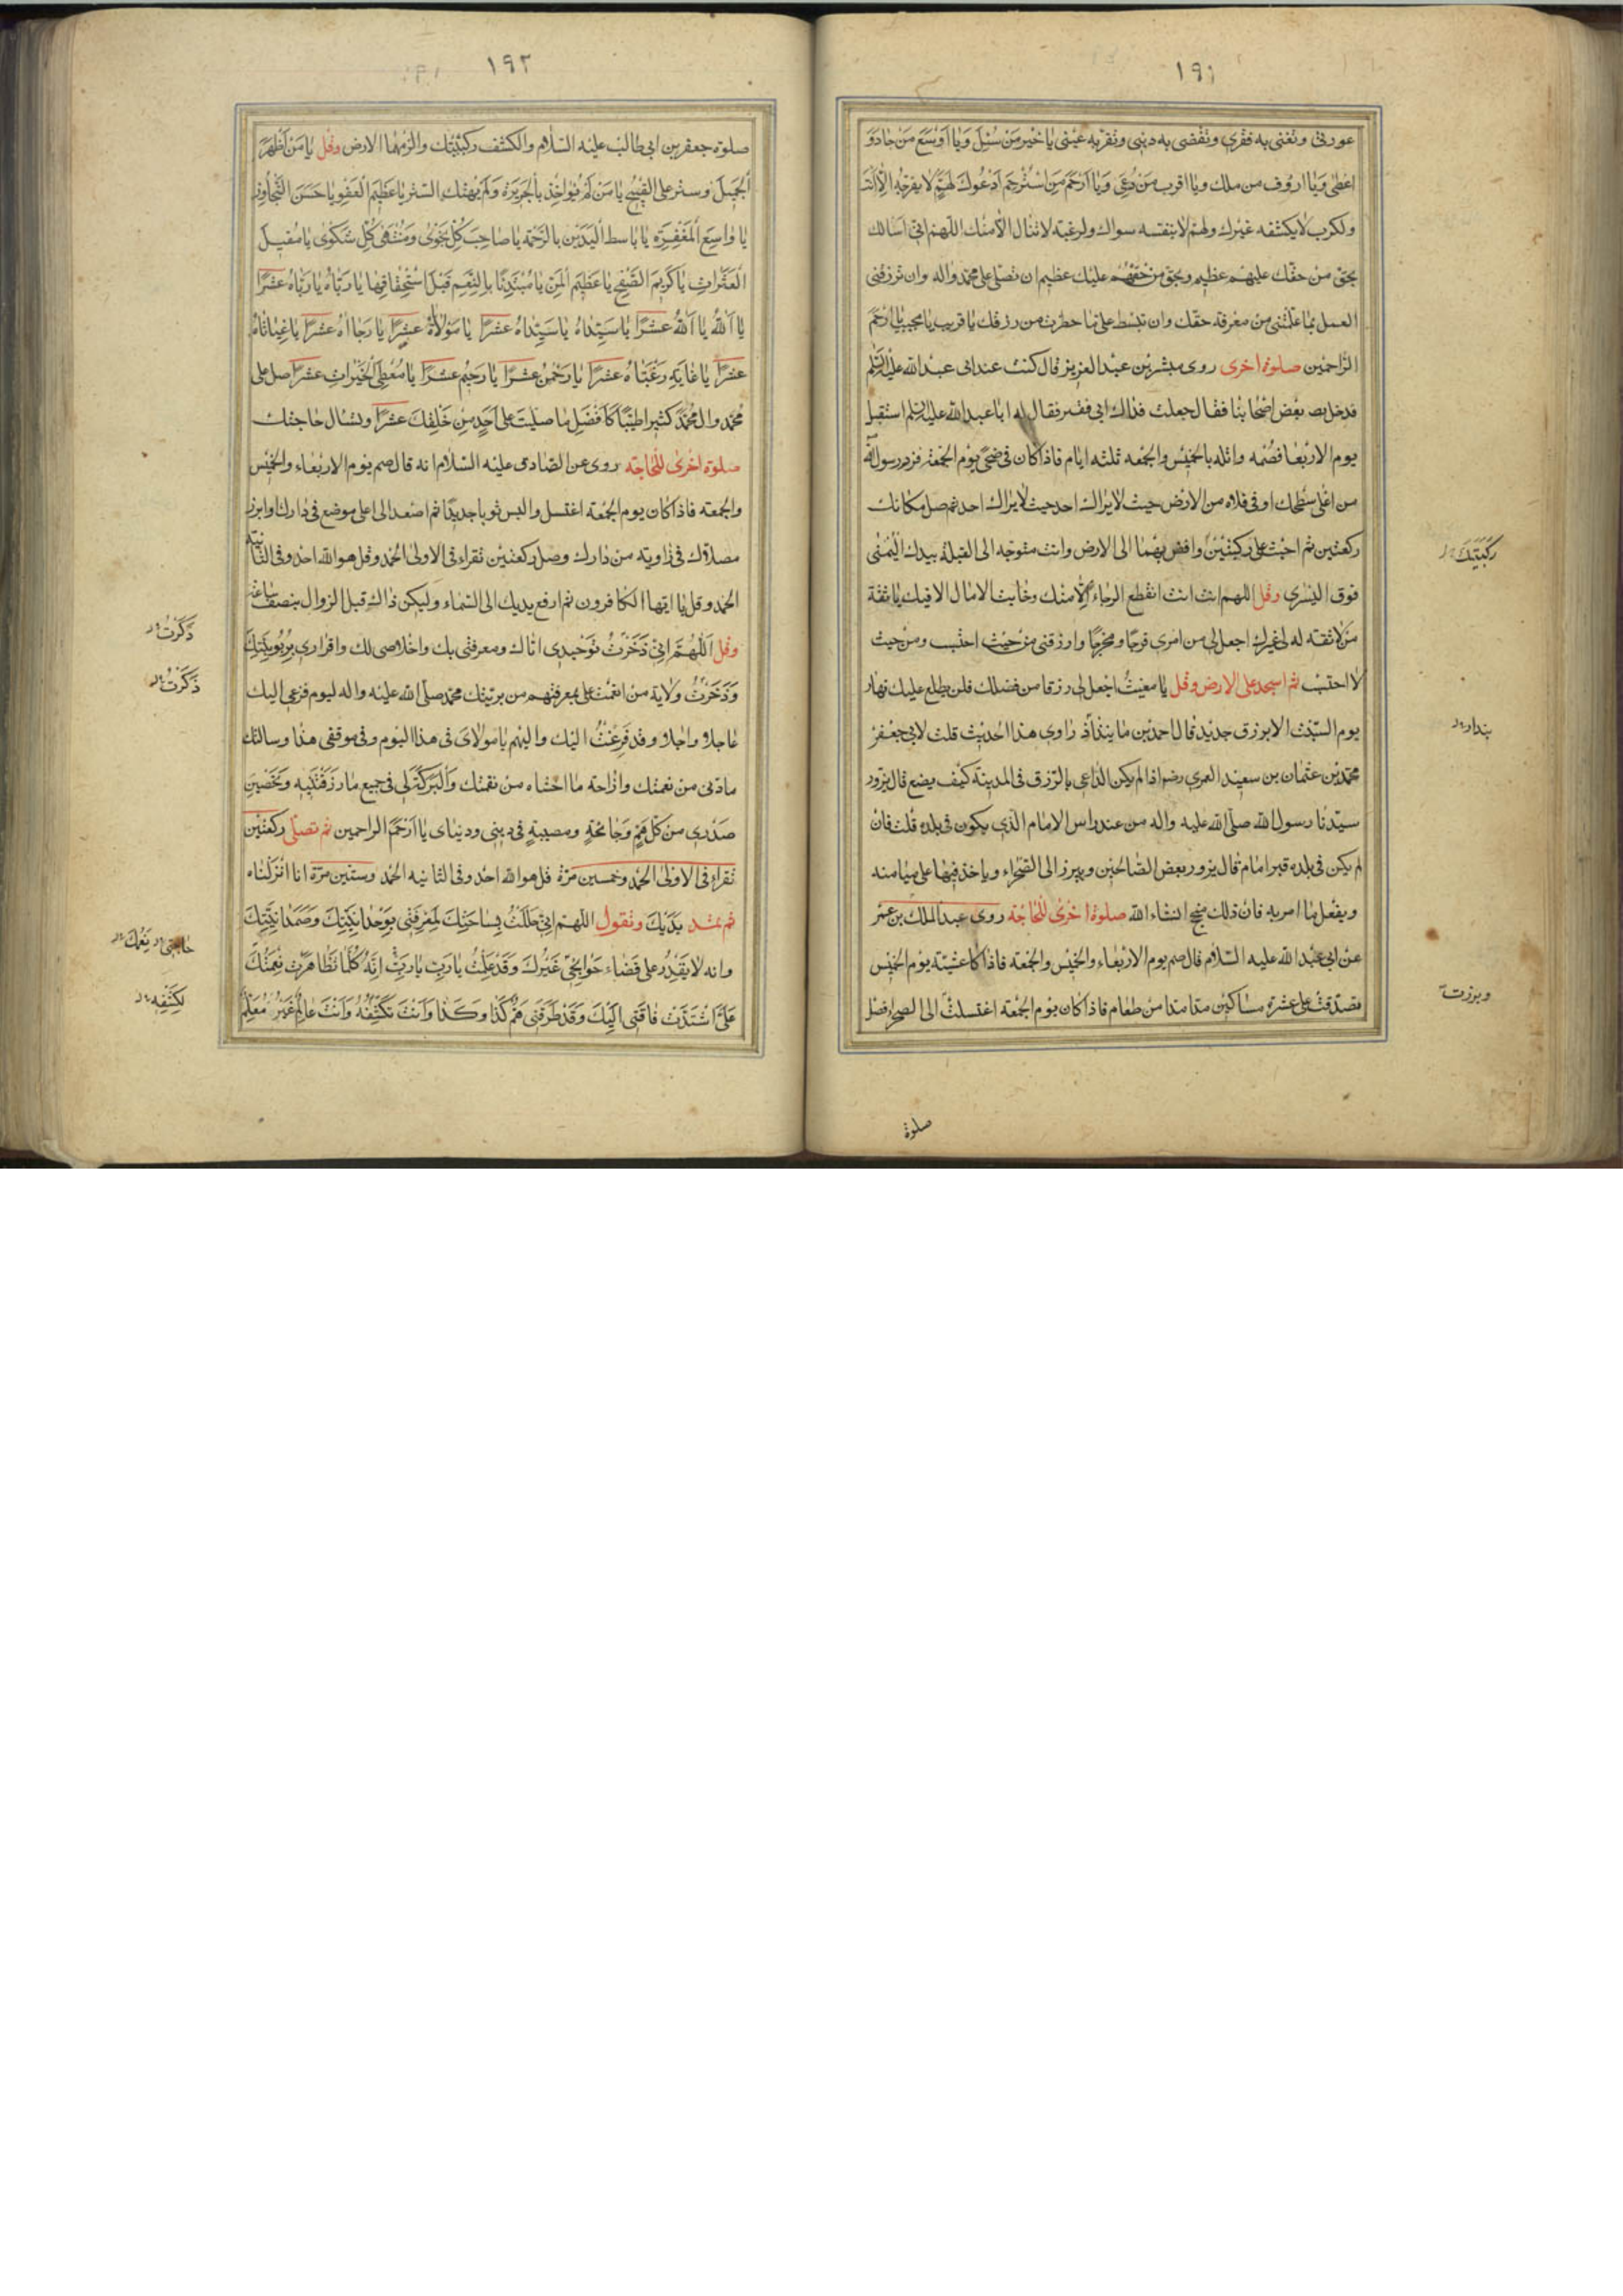 ١٩١
عورتي وتغني به فقري وتقضى به ديني وتقر به عيني يا خير من سئل ويا اوسع من جاد و
اعطى ويا ارؤف من ملك ويا اقرب من دعى ويا ارحم من استرحم ادعوك لهم لا يفرجه الا انت
ولكرب لا يكشفه غيرك ولهم لا ينفسه سواك ولرغبة لا تنال الا منك اللهم اني اسالك
بحق من حقك عليهم عظيم وبحق من حقهم عليك عظيم ان تصلى على محمد واله وان ترزقنى
العمل بما علمتنى من معرفة حقك وان تبسط على ما حظرت من رزقك يا قريب يا مجيب يا ارحم
الراحمين صلوة اخرى روى مبشر بن عبد العزيز قال كنت عند ابى عبد الله عليه السلم
فدخل بعض اصحابنا فقال جعلت فداك اني فقير فقال له ابا عبد الله عليه السلم استقبل
يوم الاربعا فصمه واتله بالخميس والجمعه ثلثه ايام فاذا كان في ضحى يوم الجمعة فزر رسول الله
من اعلى سطحك او في فلاه من الارض حيث لا يراك احد حيث لا يراك احد ثم صل مكانك
ركعتين ثم احث على ركبتين وافض بهما الى الارض وانت متوجه الى القبلة بيدك اليمنى
ركبتيك
فوق اليسرى وقل اللهم انت انت انقطع الرجاء الا منك وخابت الامال الا فيك يا ثقة
من لا ثقه له لى غيرك اجعل لى من امرى فرجا ومخرجا وارزقنى من حيث احتسب ومن حيث
لا احتسب ثم اسجد على الارض وقل يا مغيث اجعل لى رزقا من فضلك فلن يطلع عليك نهار
يوم السبت الا برزق جديد قال احمد بن راوى هذا الحديث قلت لابى جعفر
بنداد
محمد بن عثمان بن سعيد العمرى رضو اذا لم يكن الداعى بالرزق في المدينة كيف يضع قال يزور
سيدنا رسول الله صلى الله عليه واله من عند راس الامام الذي يكون في بلده قلت فان
لم يكن في بلده قبر امام قال يزور بعض الصالحين ويبرز الى الصحراء وياخذ فيها على ميامنه
ويفعل ما امر به فان ذلك منجح انشاء الله صلوة اخرى للحاجة روى عبد الملك بن عمر
عن ابى عبد الله عليه السلام قال صم يوم الاربعاء والخميس والجمعة فاذا كا عشية يوم الخميس
فصدقت على عشرة مساكين مدا مدا من طعام فاذا كان يوم الجمعه اغتسلت الى الصحراء فصل
وبرزت
صلوة
١٩٢
صلوة جعفر بن ابى طالب عليه السلام والكشف ركبتيك والزمهما الارض وقل يا من اظهر
الجميل وستر على القبيح يا من لم يواخذ بالجريرة ولم يهتك الستر يا عظيم العفو يا حسن التجاوز
يا واسع المغفرة يا باسط اليدين بالرحمة يا صاحب كل نجوى ومنتهى كل شكوى يا مقيل
العثرات يا كريم الصفح يا عظيم المن يا مبتدئا بالنعم قبل استحقاقها يا رباه يا رباه عشرا
يا الله يا الله عشرا يا سيداه يا سيداه عشرا يا مولاه عشرا يا رجااه عشرا يا غياثاه
عشرا يا غاية رغبتاه عشرا يا رحمن عشرا يا رحيم عشرا يا معطى الخيرات عشرا صل على
محمد وال محمد كثيرا طيبا كافضل ما صليت على احد من خلقك عشرا وتسال حاجتك
صلوة اخرى للحاجة روى عن الصادق عليه السلام انه قال صم يوم الاربعاء والخميس
والجمعه فاذا كان يوم الجمعة اغتسل والبس ثوبا جديدا ثم اصعد الى اعلى موضع في دارك وابرز
مصلاك في زاويه من دارك وصل ركعتين تقراء في الاولى الحمد وقل هو الله احد وفى الثانية
الحمد وقل يا ايها الكافرون ثم ارفع يديك الى السماء وليكن ذاك قبل الزوال بنصف ساعة
وقل اللهم اني ذخرت توحيدى اياك ومعرفتى بك واخلاصى لك واقرارى بربوبيتك
ذكرت
وذخرت ولاية من انعمت على بمعرفتهم من بريتك محمد صلى الله عليه واله ليوم فزعى اليك
ذكرت
عاجلا واجلا وقد فزعت اليك واليهم يا مولاى في هذا اليوم وفى موقفى هذا وسالتك
مادتى من نعمتك وازاحة ما اخشاه من نقمتك والبركة لى في جميع ما رزقتنيه وتحصين
صدرى من كل هم وجائحة ومصيبة في دينى ودنياى يا ارحم الراحمين ثم تصلى ركعتين
تقراء في الاولى الحمد وخمسين مرة قل هو الله احد وفى الثانيه الحمد وستين مرة انا انزلناه
ثم تمد يديك وتقول اللهم اني حللت بساحتك لمعرفتى بوحدانيتك وصمدانيتك
وانه لا يقدر على قضاء حوائجى غيرك وقد علمت يا رب يا رب انه كلما تظاهرت نعمتك
حاجتى نعمك
على اشتدت فاقتى اليك وقد طرقنى هم كذا وكذا وانت تكشفه وانت عالم غير معلم
بكشفه